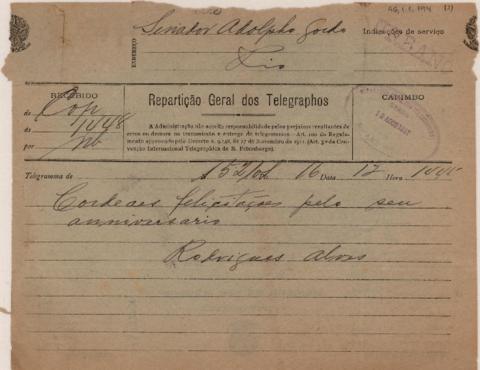 AG.1.1.194 (2)
Senador Adolpho Gordo
Rio
ENDEREÇO
Indicações de serviço
URBANO
RECEBIDO
de Cop
ás 1448
por
Repartição Geral dos Telegraphos
A Administração não aceita responsabilidade pelos prejuizos resultantes de
erros ou demora na transmissão e entrega de telegrammas - Art. 101 do Regula-
mento approvado pelo Decreto n. 9.148, de 27 de Novembro de 1911. (Art. 3º da Con-
venção Internacional Telegraphica de S. Petersburgo).
CARIMBO
Telegramma de
16 Data 12 Hora 1440
Cordeaes felicitações pelo seu
anniversario
Rodrigues Alves